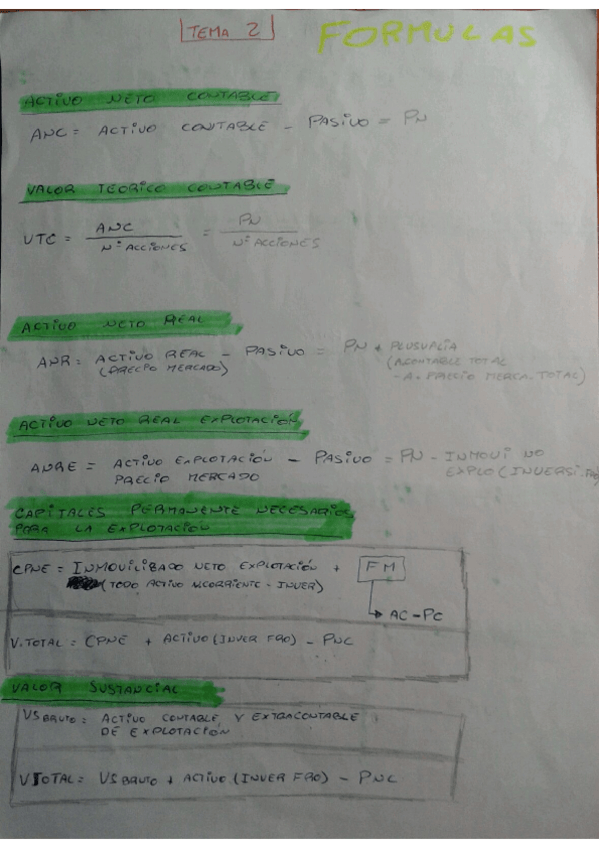 TEMA 2
FORMULAS
ACTIVO NETO CONTABLE
ANC = ACTIVO CONTABLE - PASIVO = PN
VALOR TEORICO CONTABLE
VTC = ANC / Nº ACCIONES = PN / Nº ACCIONES
ACTIVO NETO REAL
ANR = ACTIVO REAL - PASIVO = PN + PLUSVALIA
(PRECIO MERCADO) (A.CONTABLE TOTAL
- A. PRECIO MERCA. TOTAL)
ACTIVO NETO REAL EXPLOTACIÓN
ANRE = ACTIVO EXPLOTACIÓN - PASIVO = PN - INMOVI NO
PRECIO MERCADO EXPLO (INVERSI.
CAPITALES PERMANENTE NECESARIOS
PARA LA EXPLOTACIÓN
CPNE = INMOVILIBADO NETO EXPLOTACIÓN + FM
(TODO ACTIVO NCORRIENTE - INVER)
AC - PC
V.TOTAL = CPNE + ACTIVO (INVER FRO) - PNC
VALOR SUSTANCIAL
VS BRUTO = ACTIVO CONTABLE Y EXTRACONTABLE
DE EXPLOTACIÓN
VTOTAL = VS BRUTO + ACTIVO (INVER FRO) - PNC